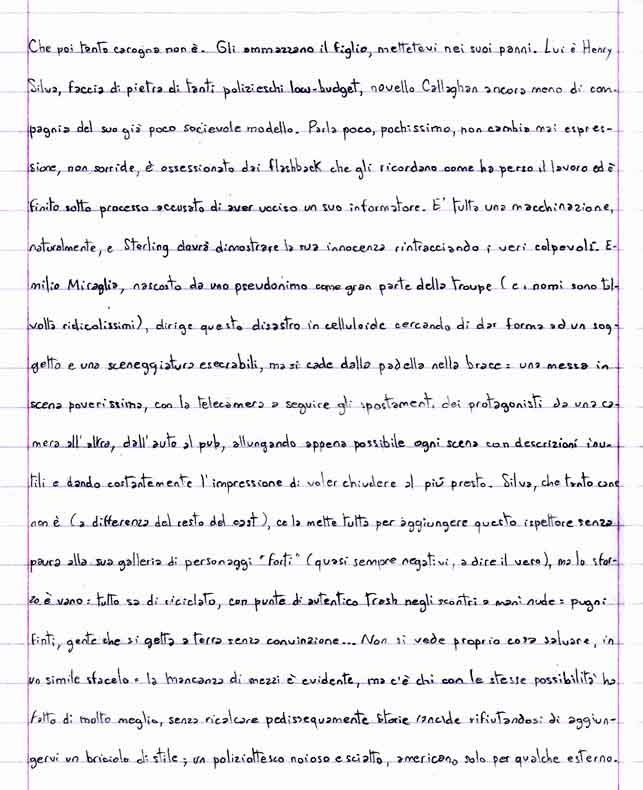 Che poi tanto carogna non è. Gli ammazzano il figlio, mettetevi nei suoi panni. Lui è Henry
Silva, faccia di pietra di tanti polizieschi low-budget, novello Callaghan ancora meno di com-
pagnia del suo già poco socievole modello. Parla poco, pochissimo, non cambia mai espres-
sione, non sorride, è ossessionato dai flashback che gli ricordano come ha perso il lavoro ed è
finito sotto processo accusato di aver ucciso un suo informatore. E' tutta una macchinazione,
naturalmente, e Sterling dovrà dimostrare la sua innocenza rintracciando i veri colpevoli. E-
milio Miraglia, nascosto da uno pseudonimo come gran parte della troupe (e i nomi sono tal-
volta ridicolissimi), dirige questo disastro in celluloide cercando di dar forma ad un sog-
getto e una sceneggiatura esecrabili, ma si cade dalla padella nella brace: una messa in
scena poverissima, con la telecamera a seguire gli spostamenti dei protagonisti da una ca-
mera all'altra, dall'auto al pub, allungando appena possibile ogni scena con descrizioni inu-
tili e dando costantemente l'impressione di voler chiudere al più presto. Silva, che tanto cane
non è (a differenza del resto del cast), ce la mette tutta per aggiungere questo ispettore senza
paura alla sua galleria di personaggi "forti" (quasi sempre negativi, a dire il vero), ma lo sfor-
zo è vano: tutto sa di riciclato, con punte di autentico trash negli scontri a mani nude: pugni
finti, gente che si getta a terra senza convinzione... Non si vede proprio cosa salvare, in
un simile sfacelo: la mancanza di mezzi è evidente, ma c'è chi con le stesse possibilità ha
fatto di molto meglio, senza ricalcare pedissequamente storie rancide rifiutandosi di aggiun-
gervi un briciolo di stile; un poliziottesco noioso e sciatto, americano solo per qualche esterno.